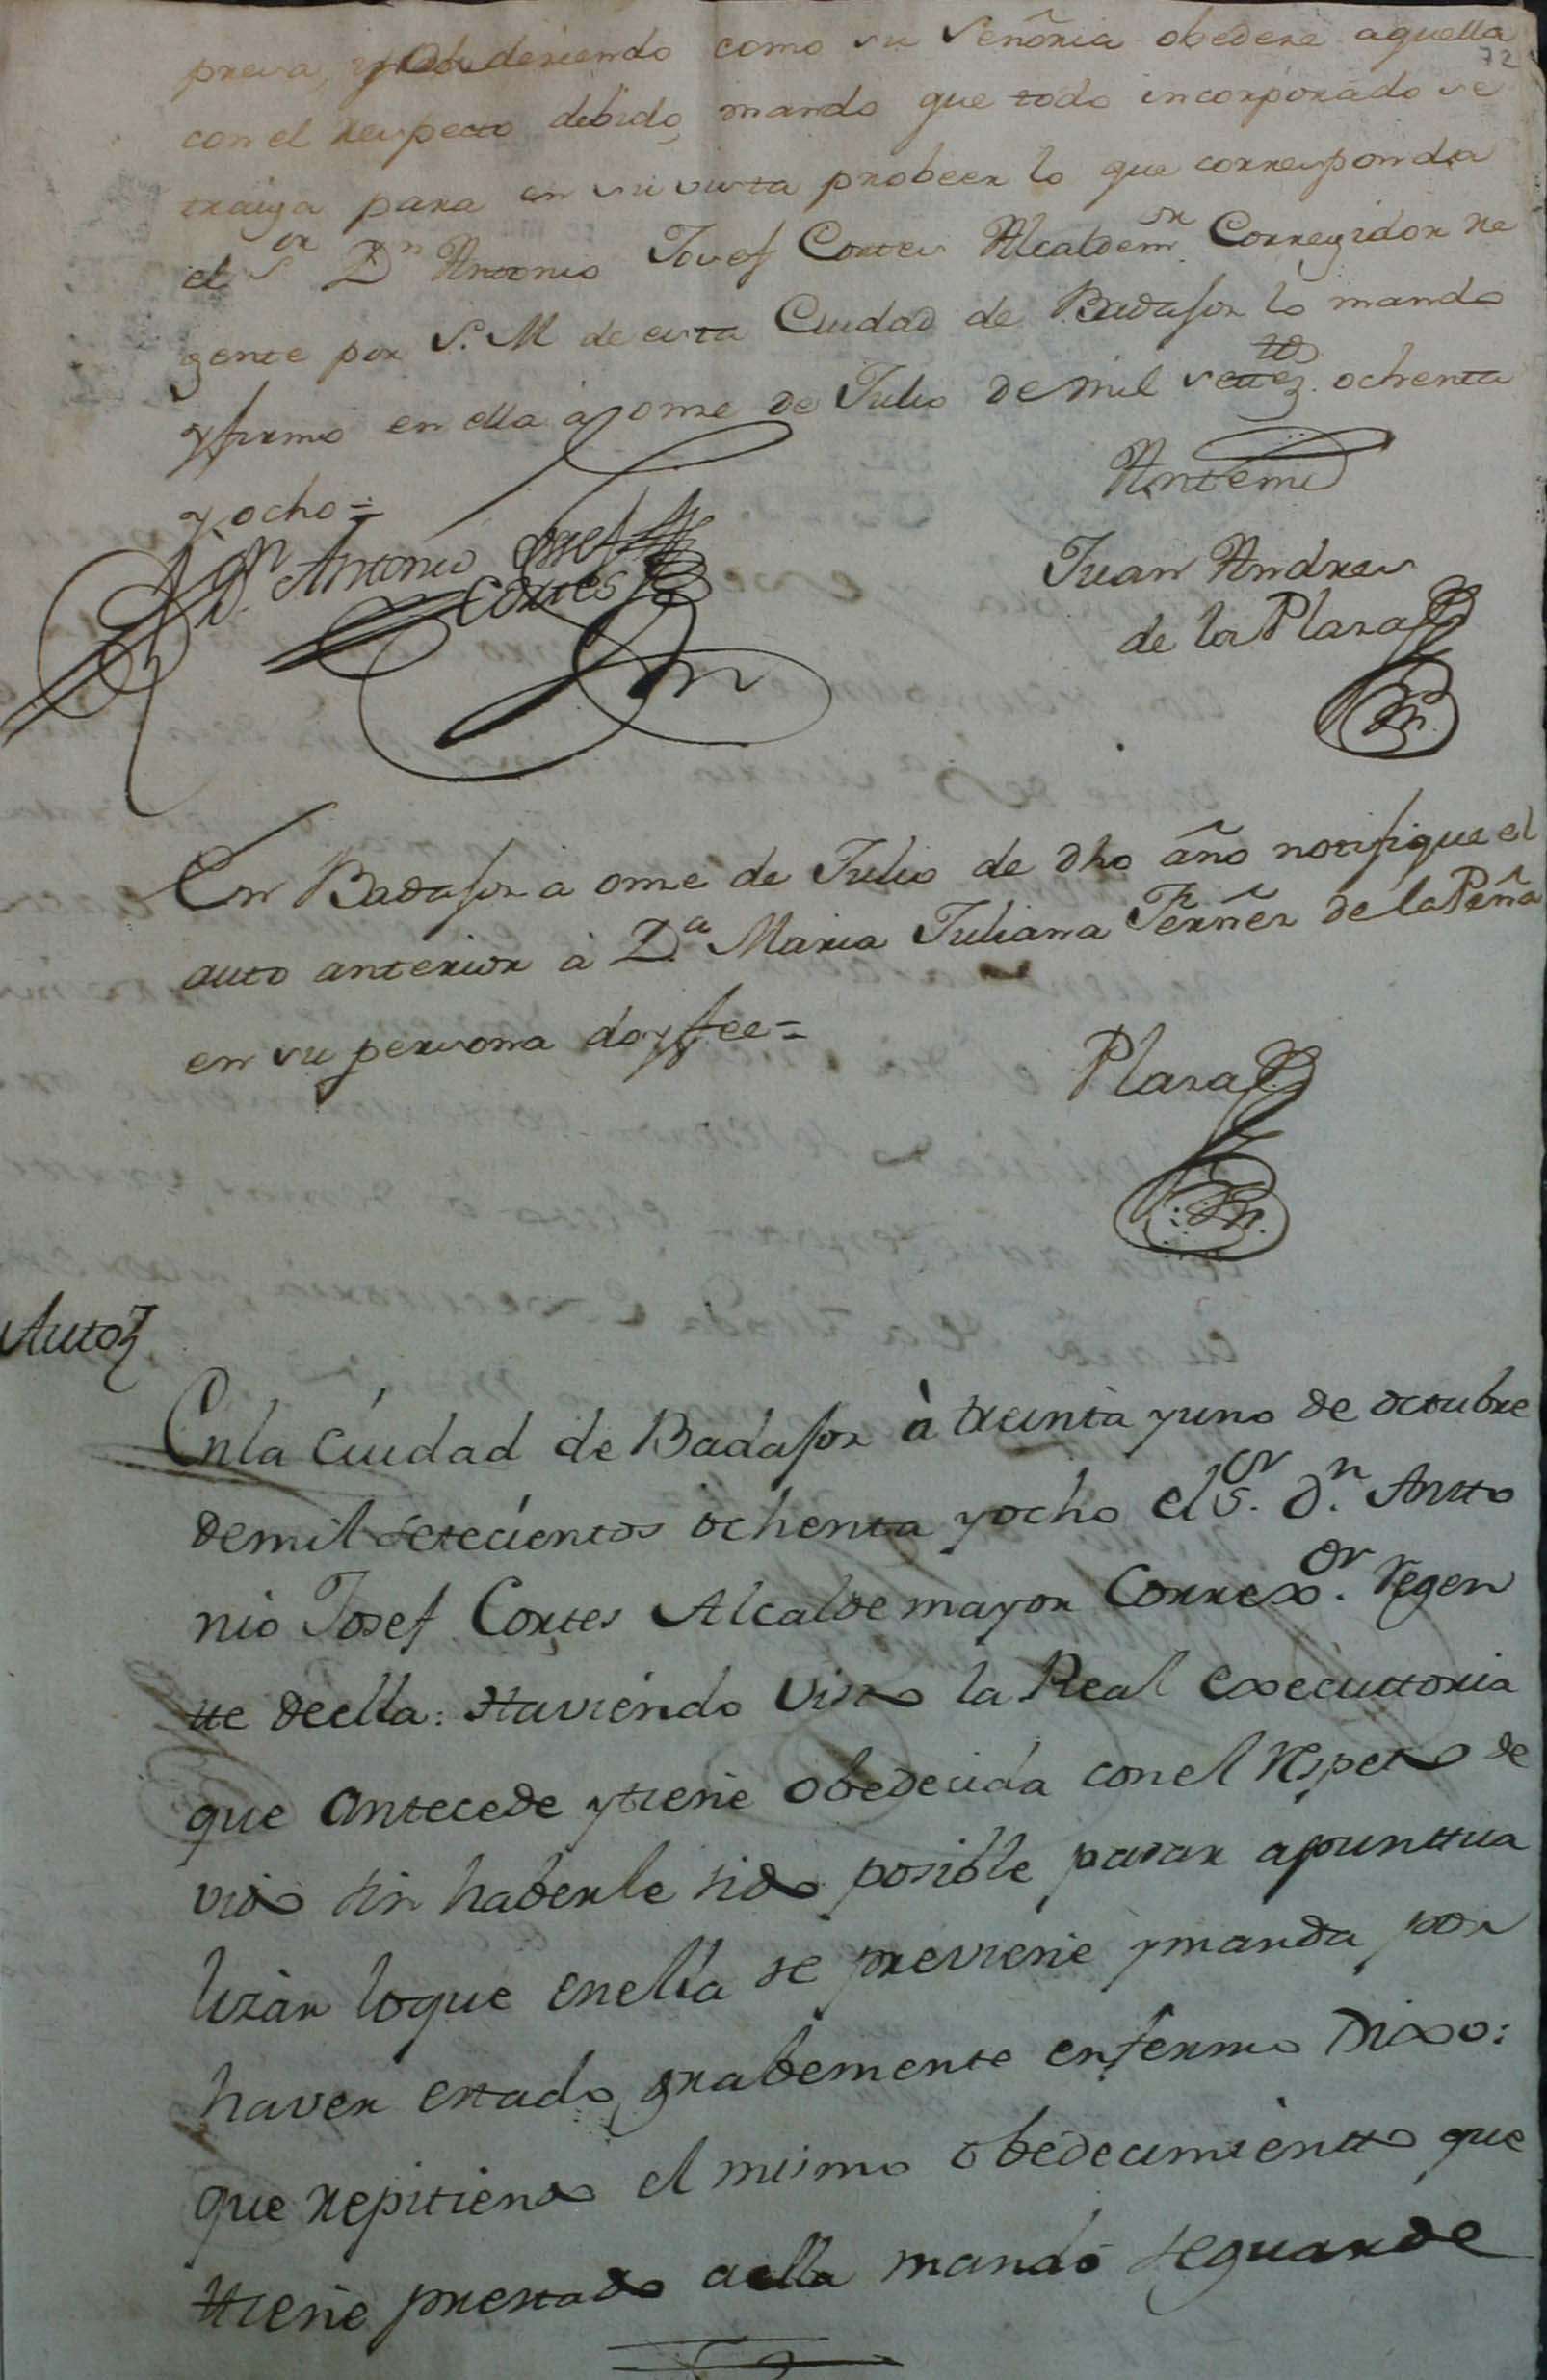 presa, y Obedeciendo como su Señoria obedece aquella
72
con el respecto debido, mando que todo incorporado se
traiga para en su vista probeer lo que corresponda
el Sor Dn Antonio Josef Cortes Alcaldemr Corregidor Re
gente por S. M de esta Ciudad de Badajoz lo mando
y firmo en ella à onze de Julio de mil settezos ochenta
y ocho =
Antemi
Dn Antonio Josef
Cortes
Juan Andres
de la Plaza
En Badajoz a onze de Julio de dho año notifique el
auto anterior à Da Maria Juliana Ferñez de la Peña
en su persona doy fee =
Plaza
Auto
En la Ciudad de Badajoz à treinta y uno de octubre
de mil setecientos ochenta y ocho el Sor Dn Antto
nio Josef Cortes Alcalde mayor Correxor Regen
tte de ella: Haviendo visto la Real Executtoria
que antecede y tiene obedecida con el respeto de
vido sin haberle sido posible pasar apunttua
lizar lo que en ella se previene y manda por
haver estado grabemente enfermo Dixo:
que repitiendo el mismo obedecimientto que
ttiene prestado a ella mandó se guarde